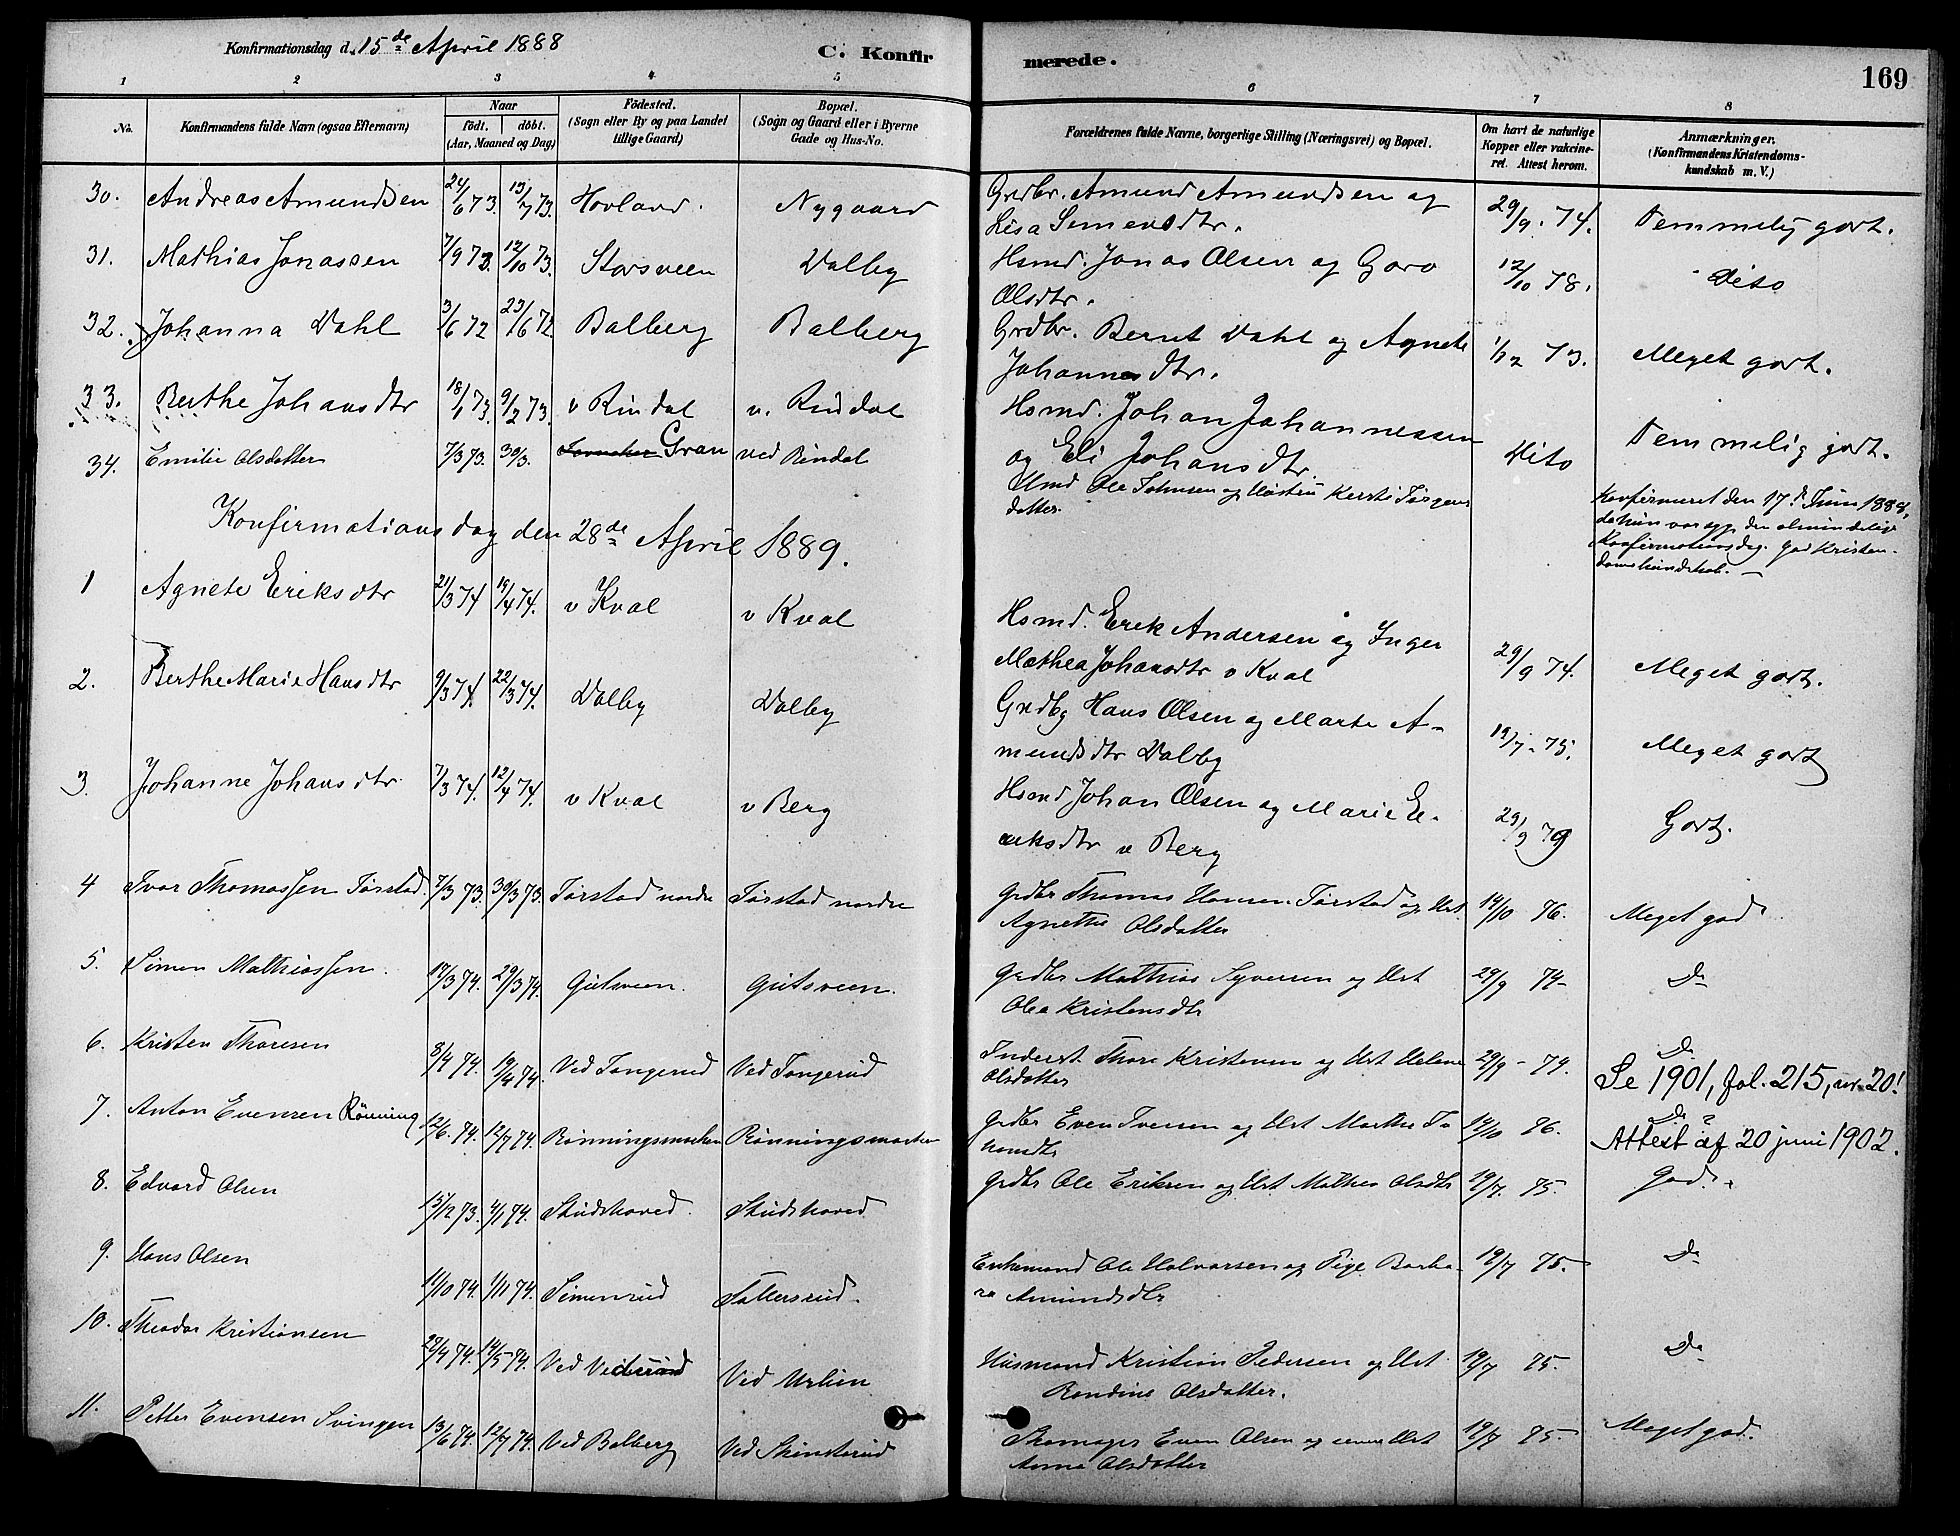 Konfirmationsdag d. 15de April 1888
C. Konfirmerede.
169
1 2 3 4 5 6 7 8
No.
Konfirmandens fulde Navn (ogsaa Efternavn)
Naar
födt. döbt.
(Aar, Maaned og Dag)
Födested.
(Sogn eller By og paa Landet
tillige Gaard)
Bopæl.
(Sogn og Gaard eller i Byerne
Gade og Hus-No.
Forældrenes fulde Navne, borgerlige Stilling (Næringsvei) og Bopæl.
Om havt de naturlige
Kopper eller vakcine-
ret. Attest herom.
Anmærkninger.
(Konfirmandens Kristendoms-
kundskab m. V.)
30. Andreas Amundsen 24/6 73. 13/7 73. Hovland. Nygaard Grdbr. Amund Amundsen og 29/9. 74. Temmelig godt.
Lisa Simensdtr.
31. Mathias Jonassen 7/9 73. 12/10 73. Storsveen Dalby Hsmd. Jonas Olsen og Goro 12/10 78. Dito
Olsdtr.
32. Johanna Dahl 3/6 72 23/6 72. Balberg Balberg Grdbr. Bernt Dahl og Agnete 1/12 73. Meget godt.
Johannesdtr.
33. Berthe Johansdtr 18/1 73. 9/2 73. v Rindal v. Rindal Hsmd. Johan Johannessen Dito Temmelig godt.
og Eli Johansdtr.
34. Emilie Olsdatter 7/3 73. 30/3. Gran ved Rindal Hmd Ole Johnsen og Hustru Kersti Jørgens
datter.
Konfirmeret den 17de Juni 1888,
da hun var syg den almindelige
Konfirmationsdag. God Kristen-
domskundskab. —
Konfirmationsdag den 28de April 1889.
1 Agnete Eriksdtr 21/3 74 19/4 74. v Kval v Kval Hsmd. Erik Andersen og Inger 29/9 74. Meget godt.
Mathea Johansdtr v Kval
2. Berthe Marie Hansdtr 9/3 74. 22/3 74. Dalby Dalby Grdbr Hans Olsen og Marte A- 19/7. 75. Meget godt
mundsdtr Dalby
3. Johanne Johansdtr. 7/3 74. 12/4 74. v Kval v Berg Hsmd Johan Olsen og Marie E- 29/9 79 Godt.
riksdtr v Berg
4 Ivar Thomassen Tørstad. 7/3 73. 30/3 73. Tørstad nordre Tørstad nordre Grdbr Thomas Hansen Tørstad og Hst 14/10 76. Meget god
Agnethe Olsdatter
5. Simen Mathiassen. 17/3 74. 29/3 74. Gutsveen. Gutsveen. Grdbr Mathias Syversen og Hst 29/9 74 Do
Olea Kristensdtr
6. Kristen Thoresen 8/4 74. 19/4 74. Ved Tangerud Ved Tangerud Inderst. Thore Kristensen og Hst Helene 29/9 - 74. Do
Olsdatter
Se 1901, fol. 215, nr. 20!
7. Anton Evensen Rönning 12/6. 74. 12/7 74. Rönningsmarken Rönningsmarken Grdbr Even Iversen og Hst Marthe Jo 14/10 76. Do
hansdtr
Attest af 20 juni 1902.
8. Edvard Olsen 15/12 73. 4/1 74. Skudshoved. Skudshoved Grdbr Ole Eriksen og Hst Mathea Olsdtr 19/7. 75. God.
9. Hans Olsen 11/10 74. 1/11 74. Simenrud Enkemand Ole Halvorsen og Pige Barba- 19/7 75. Do
ra Amundsdtr
10. Theodor Kristiansen 29/4 74. 14/5 74. Ved Ved Husmand Kristian Pedersen og Hst 19/7 75. Do
Randine Olsdatter.
11. Petter Evensen Svingen 13/6 74. 12/7 74. Ved Balberg Ved Skinderud Skomager Even Olsen og Hst 19/7 75. Meget god.
Anne Olsdatter